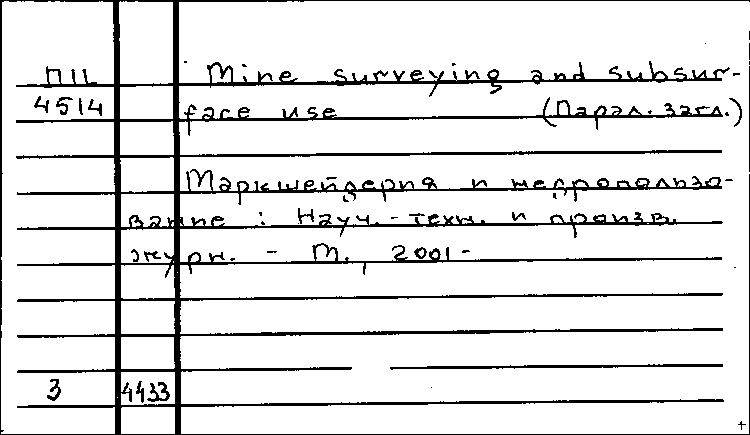 П11 Mine surveying and subsur-
4514 face use (Парал. загл.)
Маркшейдерия и недропользо-
вание : Науч.-техн. и произв.
журн. - М., 2001-
3 4433